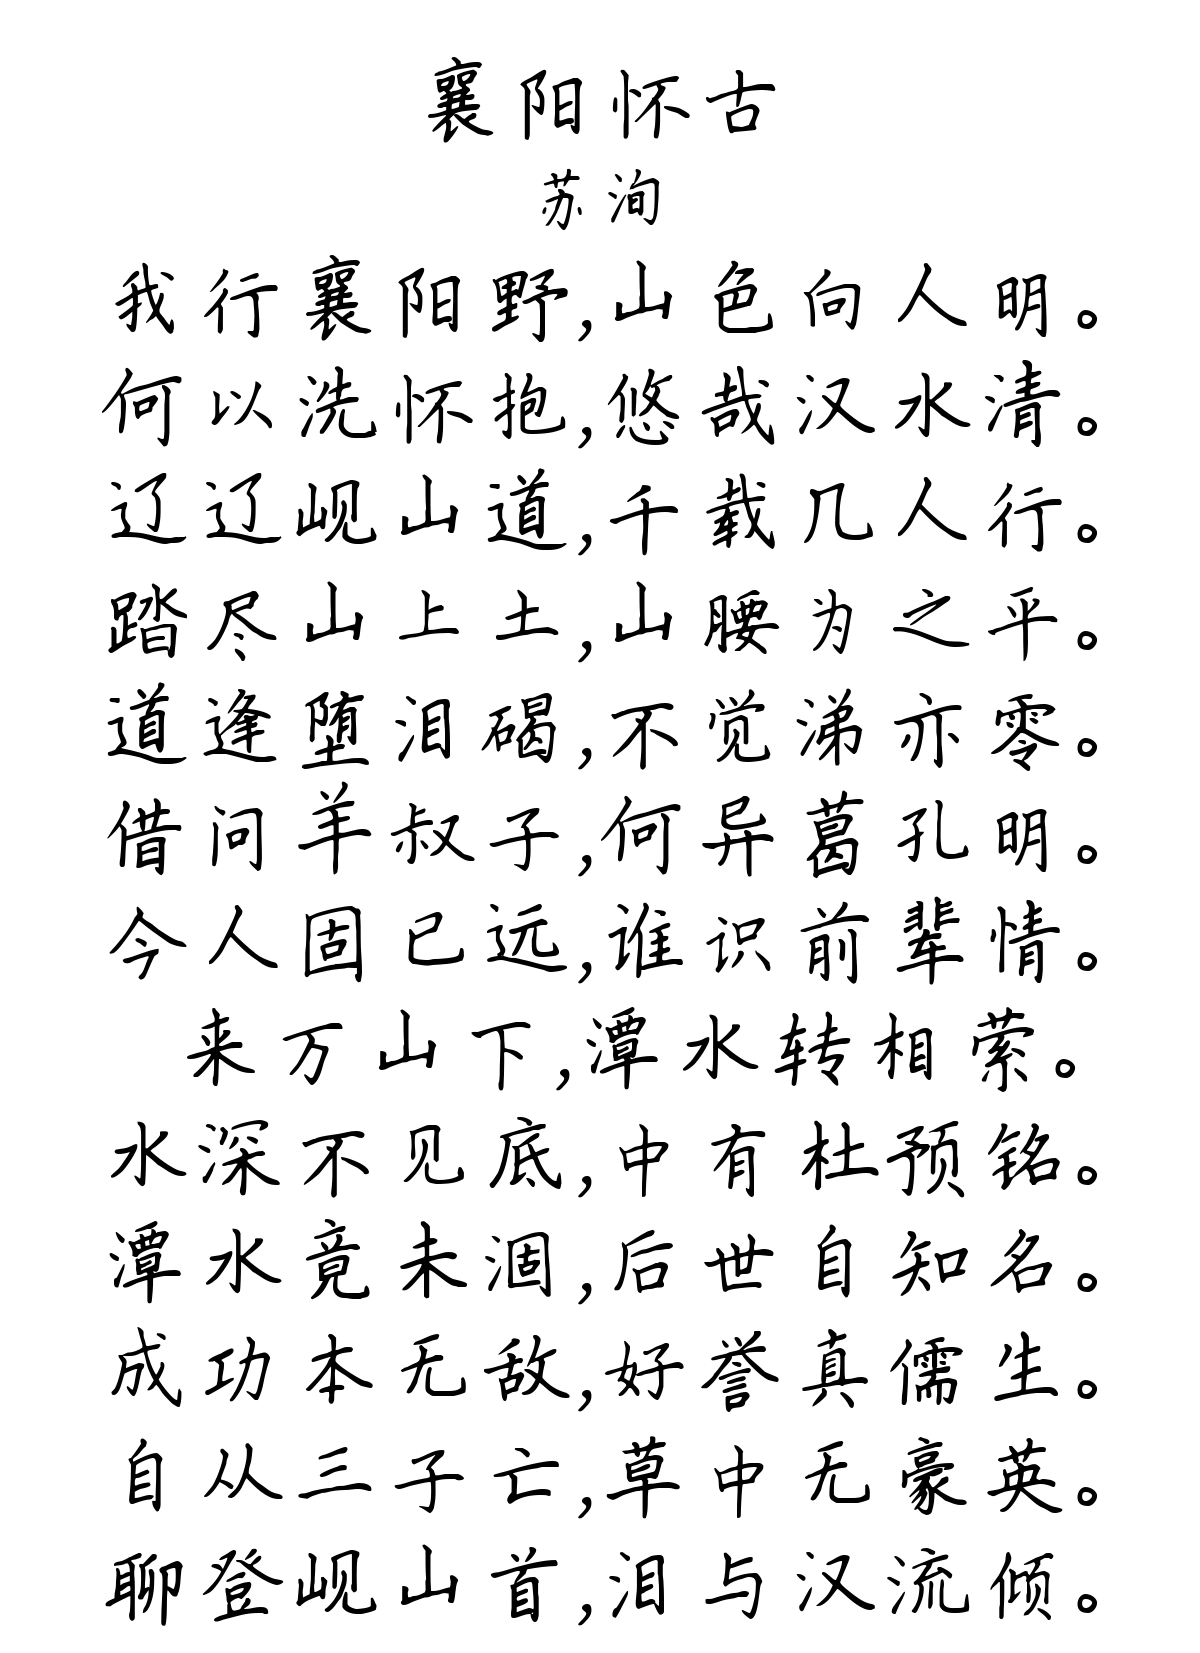 襄阳怀古
苏洵
我行襄阳野,山色向人明。
何以洗怀抱,悠哉汉水清。
辽辽岘山道,千载几人行。
踏尽山上土,山腰为之平。
道逢堕泪碣,不觉涕亦零。
借问羊叔子,何异葛孔明。
今人固已远,谁识前辈情。
来万山下,潭水转相萦。
水深不见底,中有杜预铭。
潭水竟未涸,后世自知名。
成功本无敌,好誉真儒生。
自从三子亡,草中无豪英。
聊登岘山首,泪与汉流倾。